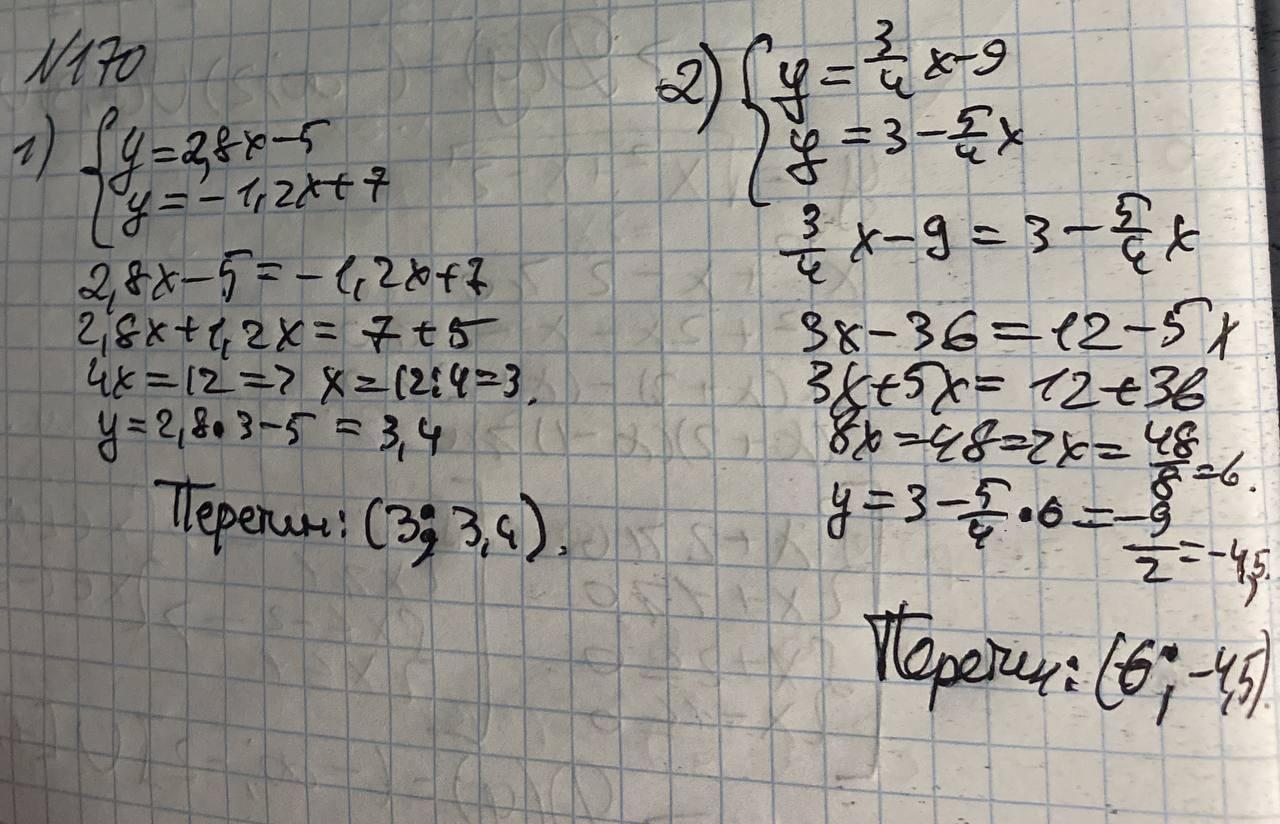 №170
1) { y = 2,8x - 5
y = - 1,2x + 7
2,8x - 5 = - 1,2x + 7
2,8x + 1,2x = 7 + 5
4x = 12 => x = 12:4 = 3.
y = 2,8 • 3 - 5 = 3,4
Перетин: (3; 3,4).
2) { y = 3/4 x - 9
y = 3 - 5/4 x
3/4 x - 9 = 3 - 5/4 x
3x - 36 = 12 - 5x
3x + 5x = 12 + 36
8x = 48 => x = 48/8 = 6.
y = 3 - 5/4 • 6 = -9/2 = -4,5.
Перетин: (6; -4,5).